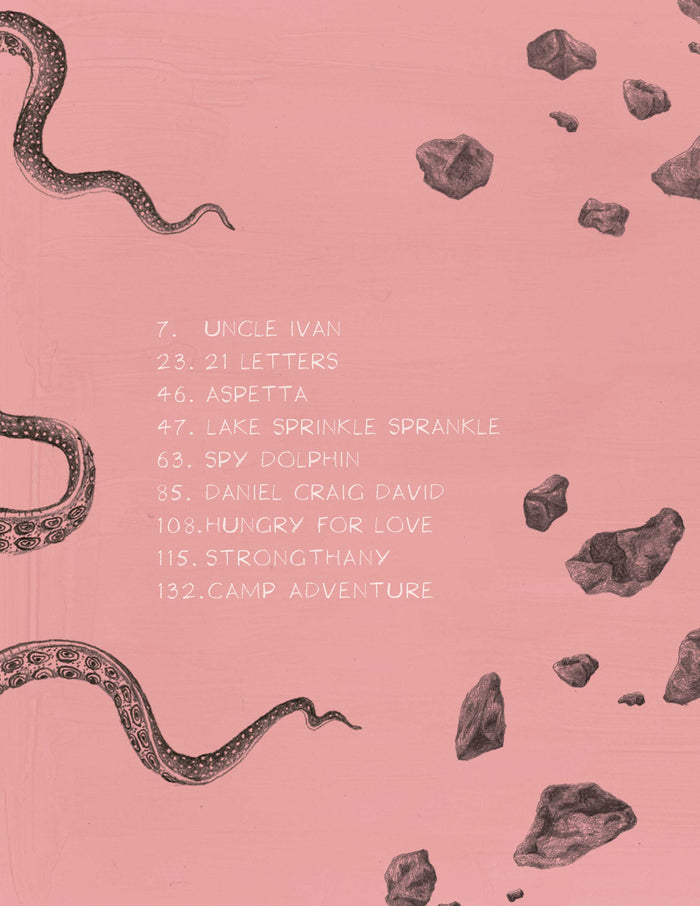 7. UNCLE IVAN
23. 21 LETTERS
46. ASPETTA
47. LAKE SPRINKLE SPRANKLE
63. SPY DOLPHIN
85. DANIEL CRAIG DAVID
108.HUNGRY FOR LOVE
115. STRONGTHANY
132.CAMP ADVENTURE